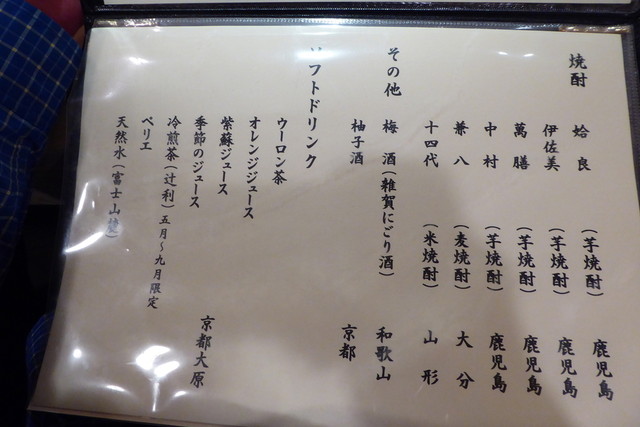 焼酎
蛤良 (芋焼酎) 鹿児島
伊佐美 (芋焼酎) 鹿児島
萬膳 (芋焼酎) 鹿児島
中村 (芋焼酎) 鹿児島
兼八 (麦焼酎) 大分
十四代 (米焼酎) 山形
その他
梅酒(雑賀にごり酒) 和歌山
柚子酒 京都
ソフトドリンク
ウーロン茶
オレンジジュース
紫蘇ジュース
季節のジュース 京都大原
冷煎茶(辻利)五月〜九月限定
ペリエ
天然水(富士山